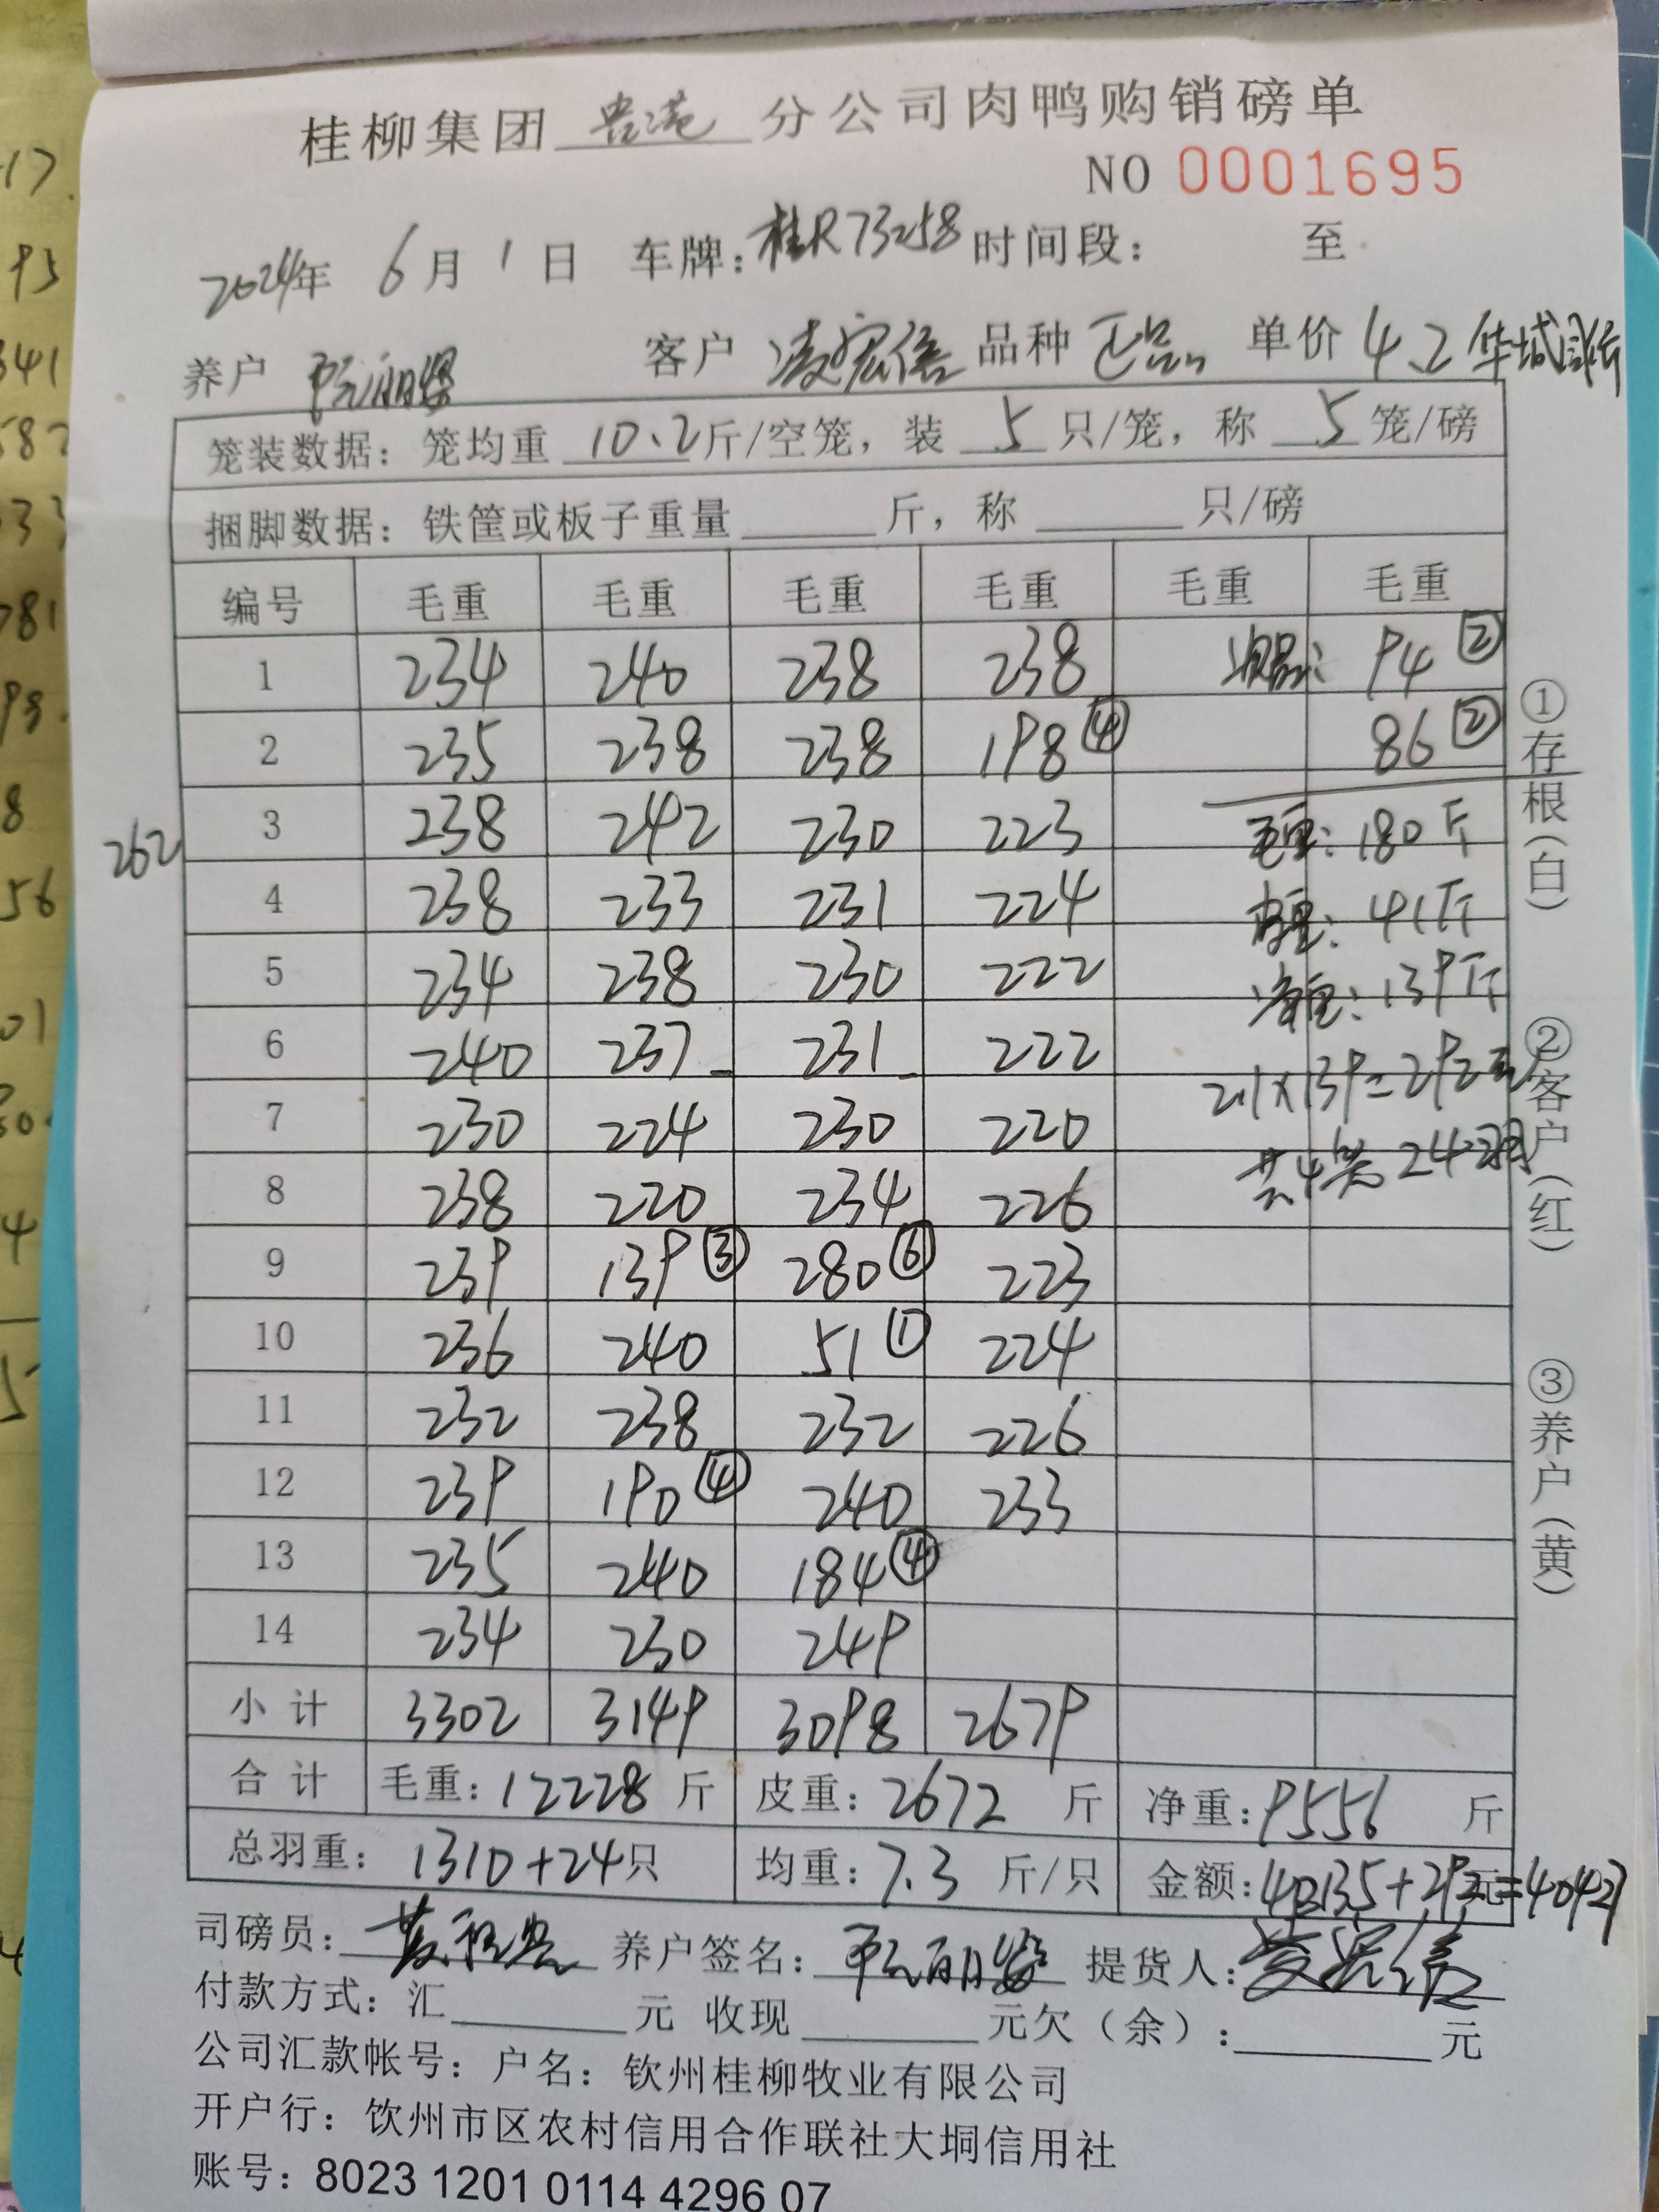 桂柳集团 贵港 分公司肉鸭购销磅单
NO 0001695
2024年 6月 1日 车牌:桂R73258 时间段: 至
养户 客户 凌宏信 品种 正品 单价 4.2
笼装数据:笼均重 10.2斤/空笼,装 5 只/笼,称 5 笼/磅
捆脚数据:铁筐或板子重量 斤,称 只/磅
编号 毛重 毛重 毛重 毛重 毛重 毛重
1 234 240 238 238 次品: 94②
2 235 238 238 198④ 86②
3 238 242 230 223 毛重:180斤
262
4 238 233 231 224 皮重:41斤
5 234 238 230 222 净重:139斤
6 240 237 231 222 2.1×139=292元
7 230 224 230 220 共4笼 24羽
8 238 220 234 226
9 239 139③ 280⑥ 223
10 236 240 51① 224
11 232 238 232 226
12 239 190④ 240 233
13 235 240 184④
14 234 230 249
小计 3302 3149 3098 2679
合计 毛重:12228斤 皮重:2672斤 净重:9556斤
总羽重:1310+24只 均重:7.3斤/只 金额:40135+292元=40427
司磅员: 养户签名: 提货人:
付款方式:汇 元 收现 元欠(余): 元
公司汇款帐号:户名:钦州桂柳牧业有限公司
开户行:饮州市区农村信用合作联社大垌信用社
账号:8023 1201 0114 4296 07
①存根(白)
②客户(红)
③养户(黄)